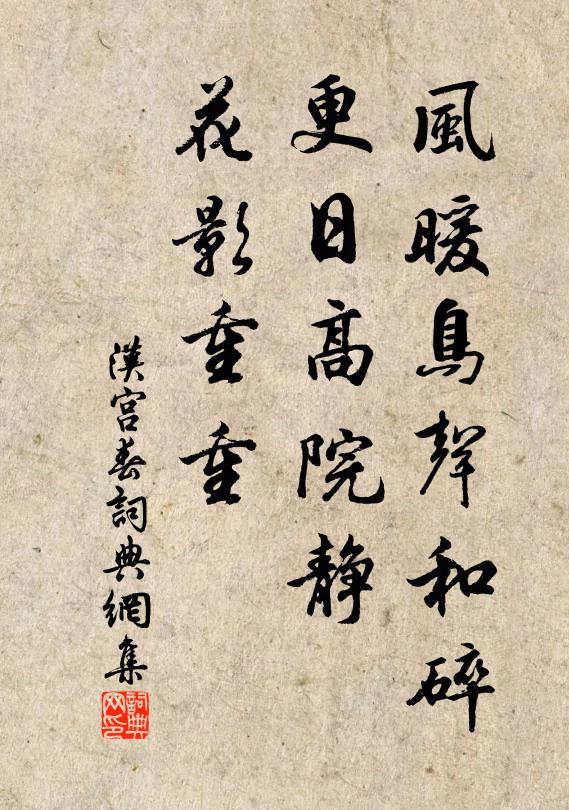 風暖鳥聲和碎
更日高院静
花影重重
漢宮春詞典網集
詞典
网印